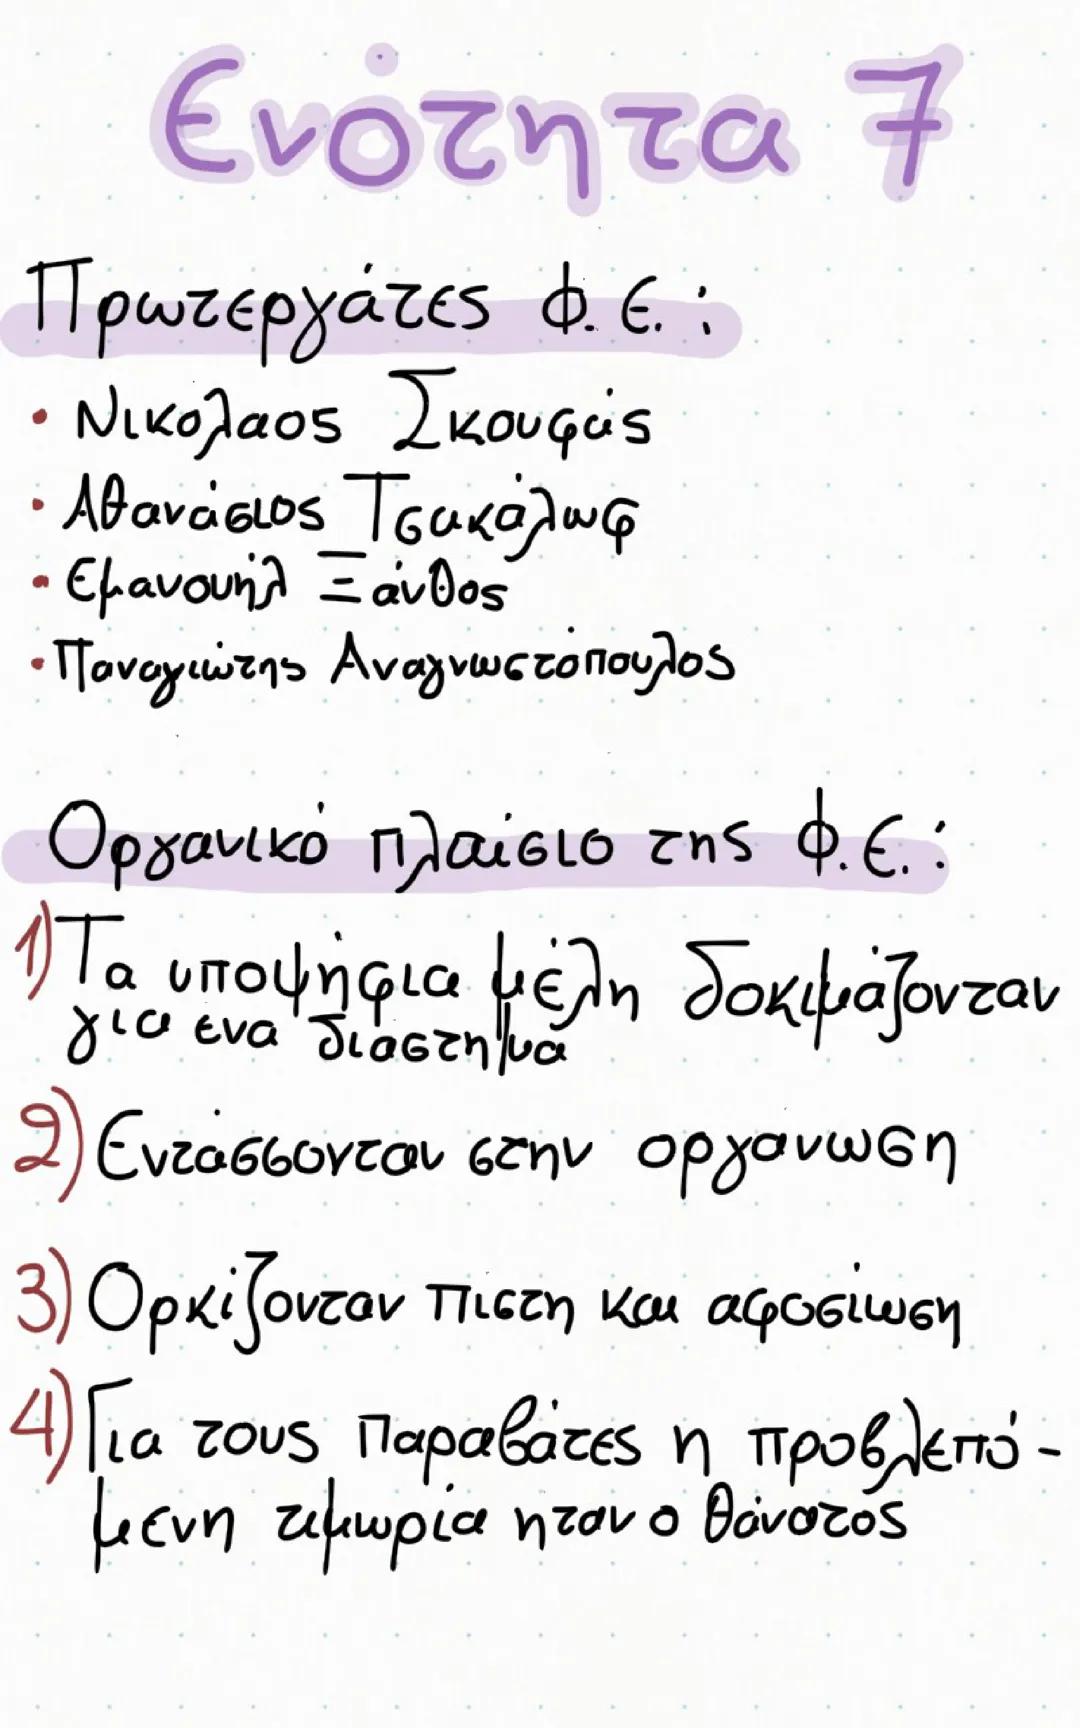 Ενότητα 7
Πρωτεργάτες Φ.Ε.:
• Νικολαος Σκουφάς
• Αθανάσιος Τσακάλωφ
• Εμανουήλ Ξάνθος
• Παναγιώτης Αναγνωστόπουλος
Οργανικό πλαίσιο της Φ.Ε.:
1) Τα υποψήφια μέλη δοκιμάζονταν
για ενα διαστημα
2) Εντάσσονταν στην οργανωση
3) Ορκίζονταν πιστη και αφοσίωση
4) Για τους παραβάτες η προβλεπό-
μενη τιμωρία ηταν ο θάνατος